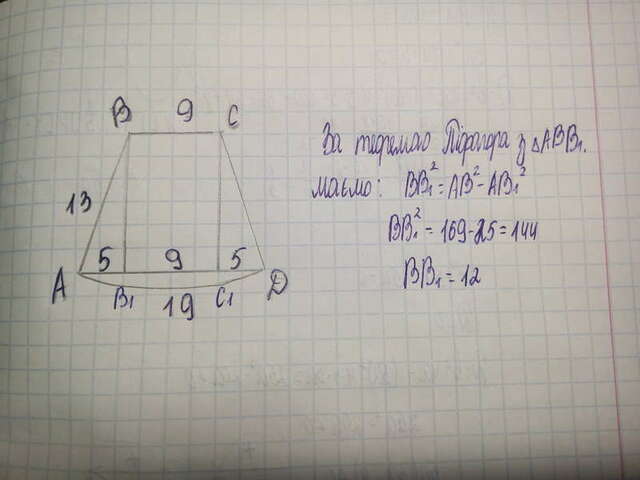 B 9 C
13
5 9 5
A B₁ 19 C₁ D
За теоремаю Піфагора з △ABB₁.
маємо: BB₁² = AB² - AB₁²
BB₁² = 169 - 25 = 144
BB₁ = 12